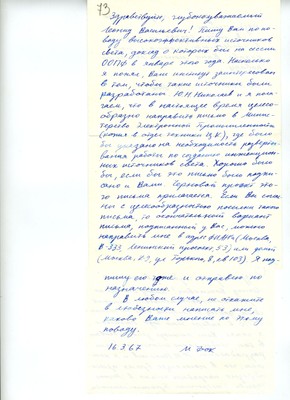 73
Здравствуйте, глубокоуважаемый
Леонид Васильевич! Пишу Вам по по-
воду высокоэффективных источников
света, доклад о которых был на сессии
ООПФ в январе этого года. Насколько
я понял, Ваш институт заинтересован
в том, чтобы такие источники были
разработаны. Ю.П. Николаев и я пола-
гаем, что в настоящее время целесо-
образно направить письмо в Мини-
стерство Электронной Промышленности
(копия в отдел техники Ц.К.), где было
бы указано на необходимость разверты-
вания работы по созданию
источников света. Хорошо было
бы, если бы это письмо было подпи-
сано и Вами. Черновой проект это-
го письма прилагается. Если Вы соглас-
ны с целесообразностью посылки такого
письма, то окончательный вариант
письма, подписанный у Вас, можно
направить мне в адрес ФИАНа (Москва,
В 333, Ленинский проспект, 53) или домой
(Москва, К-9, ул. Горького, 8, кв 103). Я под-
пишу его тоже и отправлю по
назначению.
В любом случае, не откажите
в любезности написать мне,
каково Ваше мнение по этому
поводу.
16.3.67.